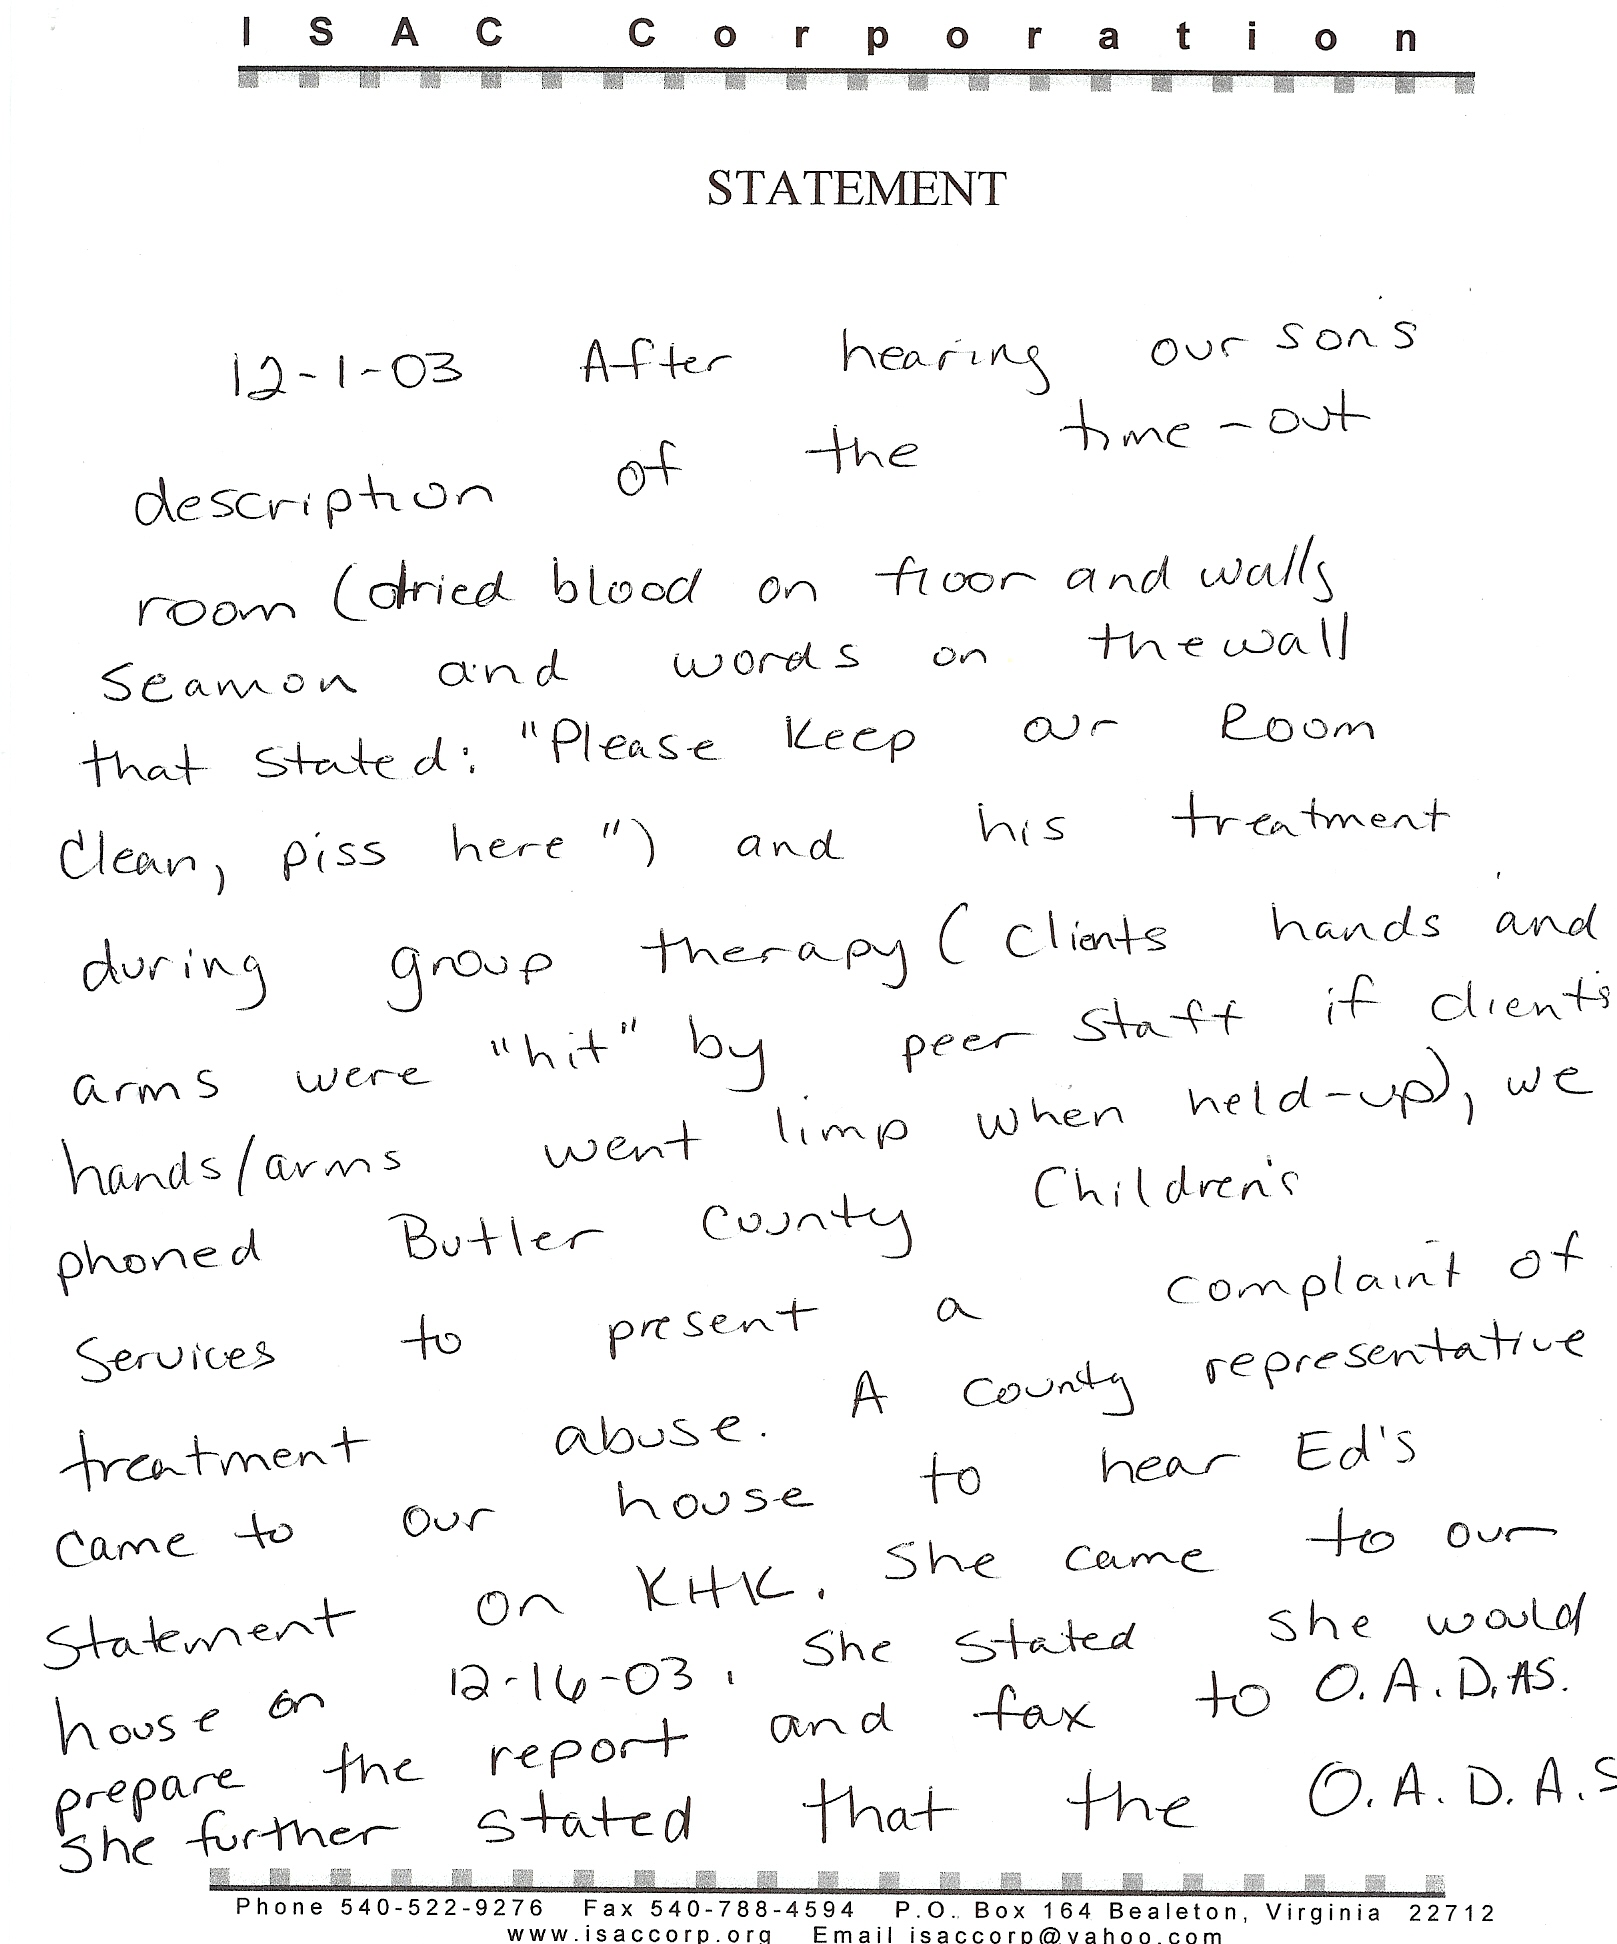 ISAC Corporation
STATEMENT
12-1-03 After hearing our son's
description of the time-out
room (dried blood on floor and walls
seamon and words on the wall
that stated: "Please Keep our Room
Clean, piss here") and his treatment
during group therapy (clients hands and
arms were "hit" by peer staff if clients
hands/arms went limp when held-up), we
phoned Butler County Children's
Services to present a complaint of
treatment abuse. A county representative
came to our house to hear Ed's
statement on KHK. She came to our
house on 12-16-03. She stated she would
prepare the report and fax to O.A.D.AS.
She further stated that the O.A.D.A.S
Phone 540-522-9276 Fax 540-788-4594 P.O. Box 164 Bealeton, Virginia 22712
www.isaccorp.org Email isaccorp@yahoo.com